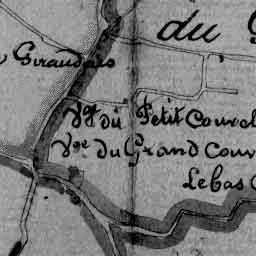 du
Giraudais
Vge du Petit Courd
Vge du Grand Cour
Lebas